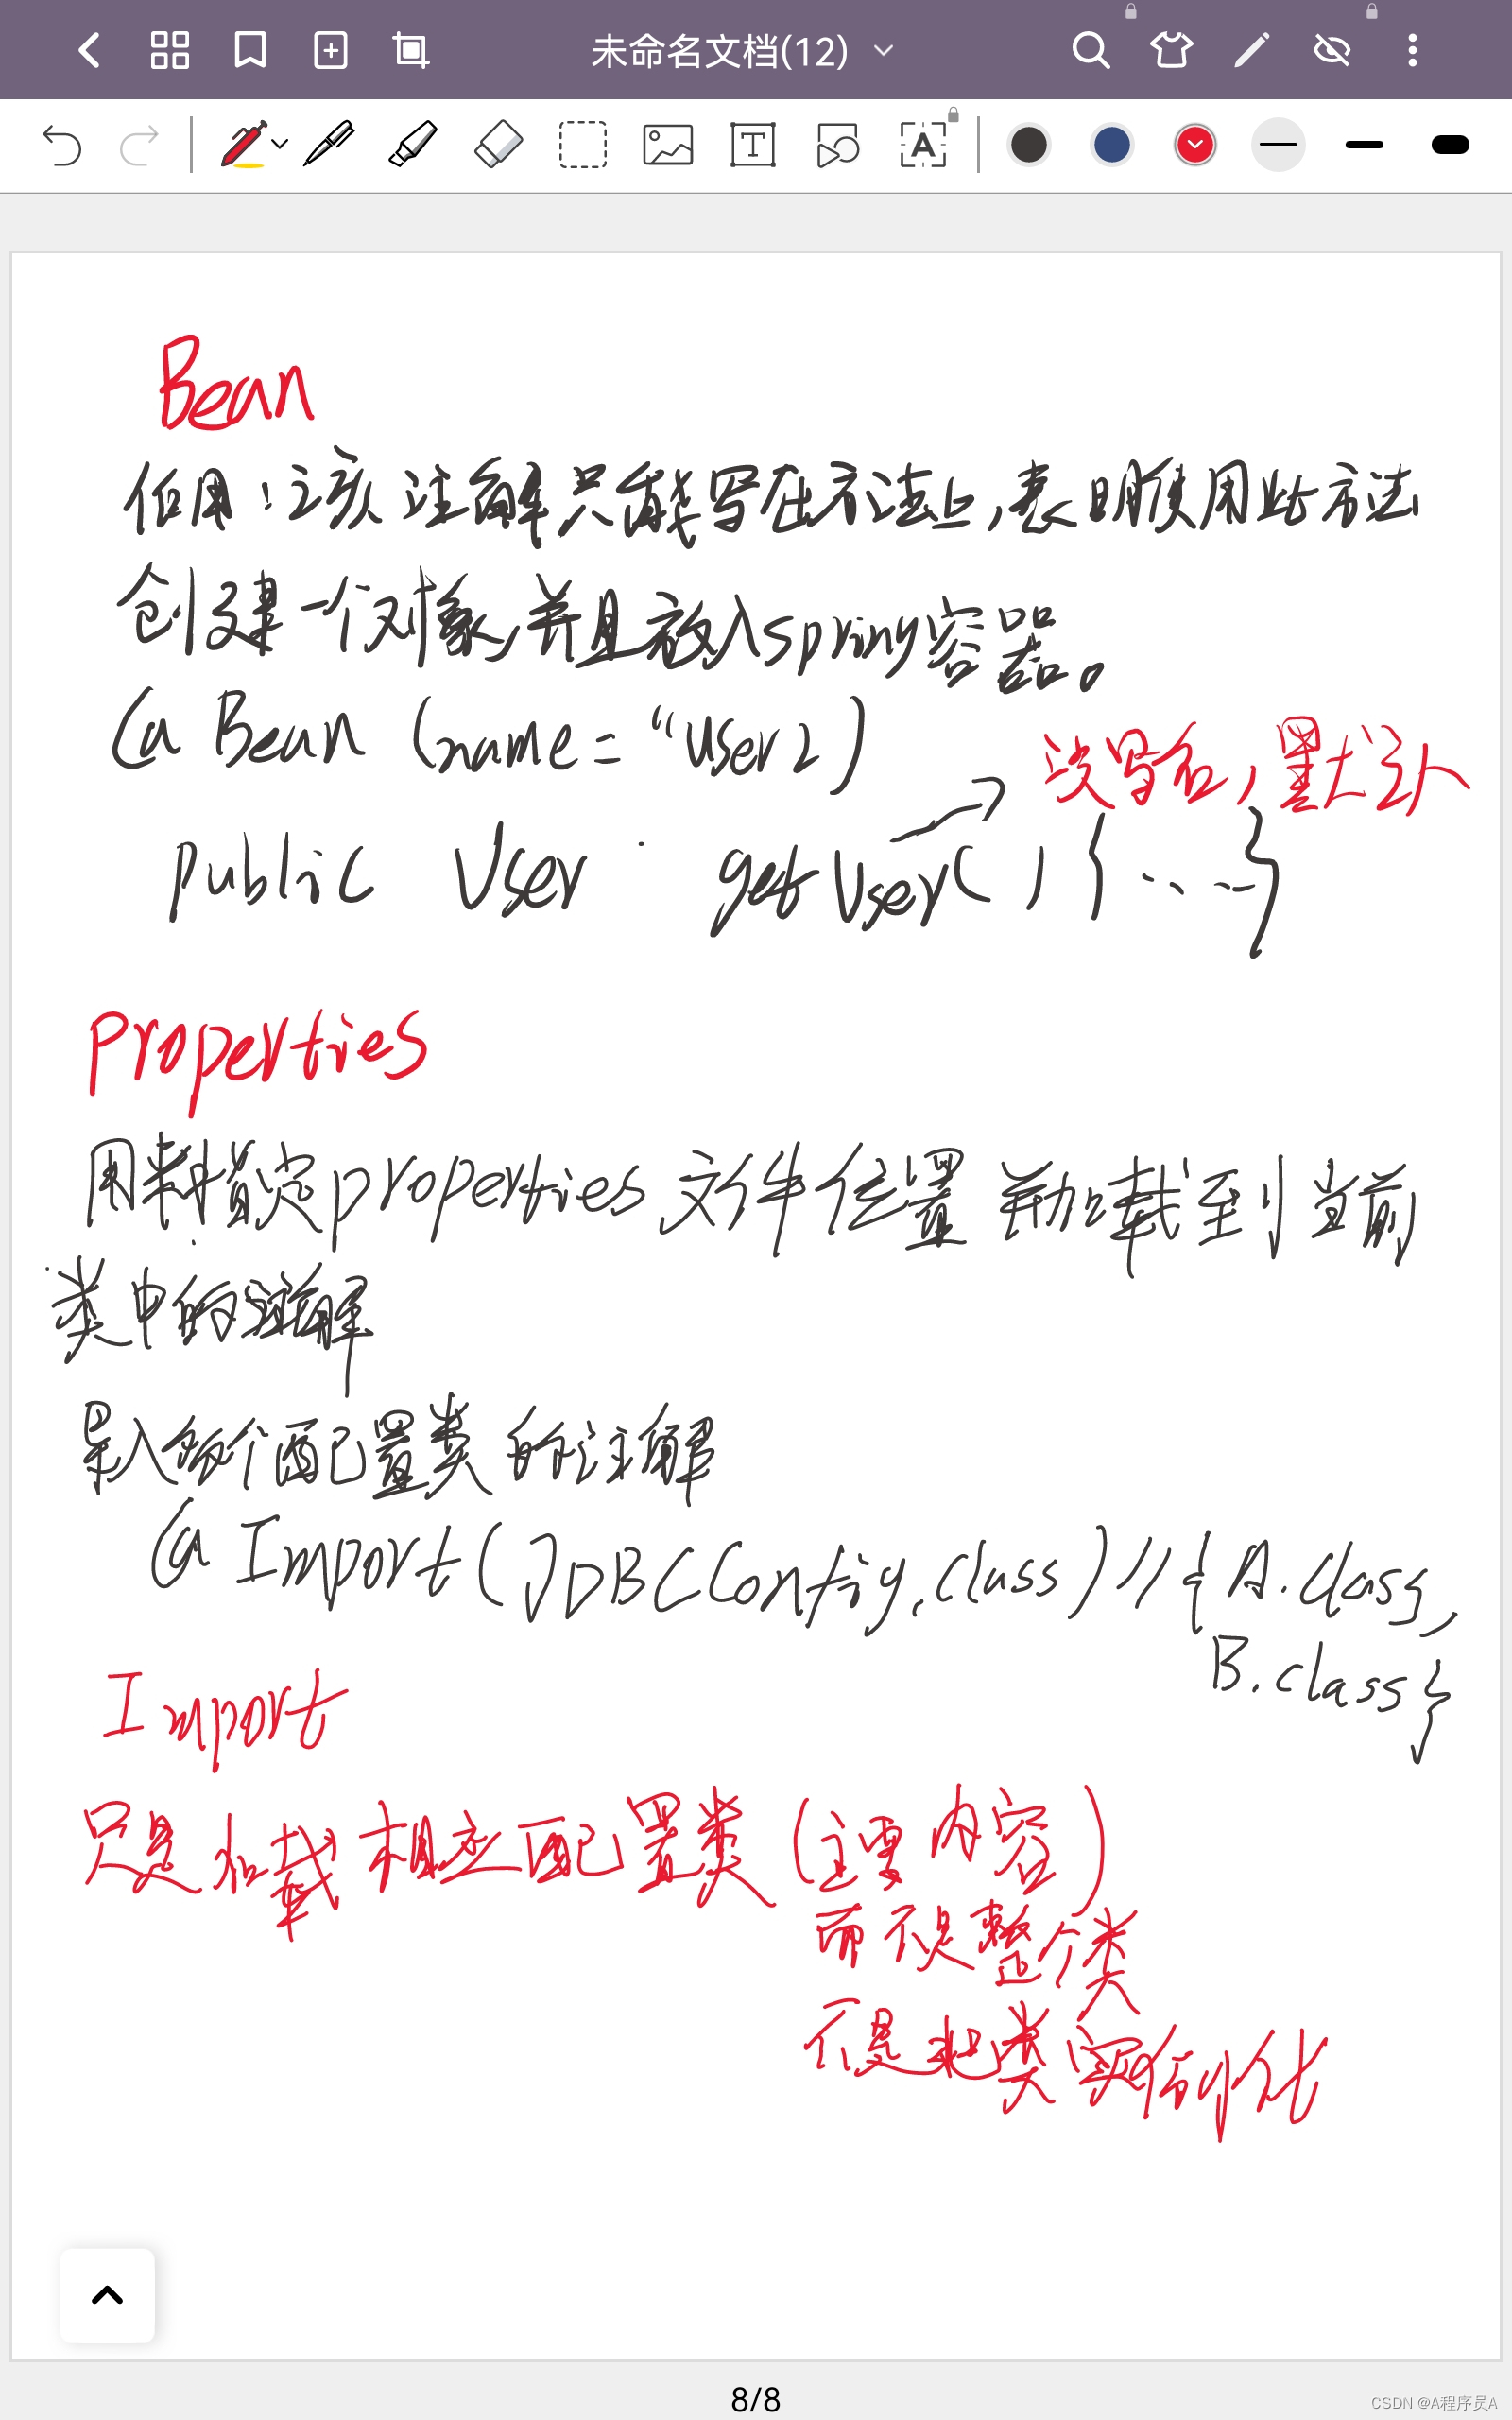 未命名文档(12)
Bean
作用：该注解只能写在方法上，表明使用此方法
创建一个对象，并且放入spring容器。
@Bean (name="user2)
没写名，默认
public User getUser(){.....}
Properties
用来指定properties文件位置并加载到当前
类中的注解
导入每个配置类的注解
@Import(JDBCConfig.class)//{A.class,
B.class}
Import
只是加载相应配置类(主要内容)
而不是整个类
不是把类实例化
8/8
CSDN @A程序员A